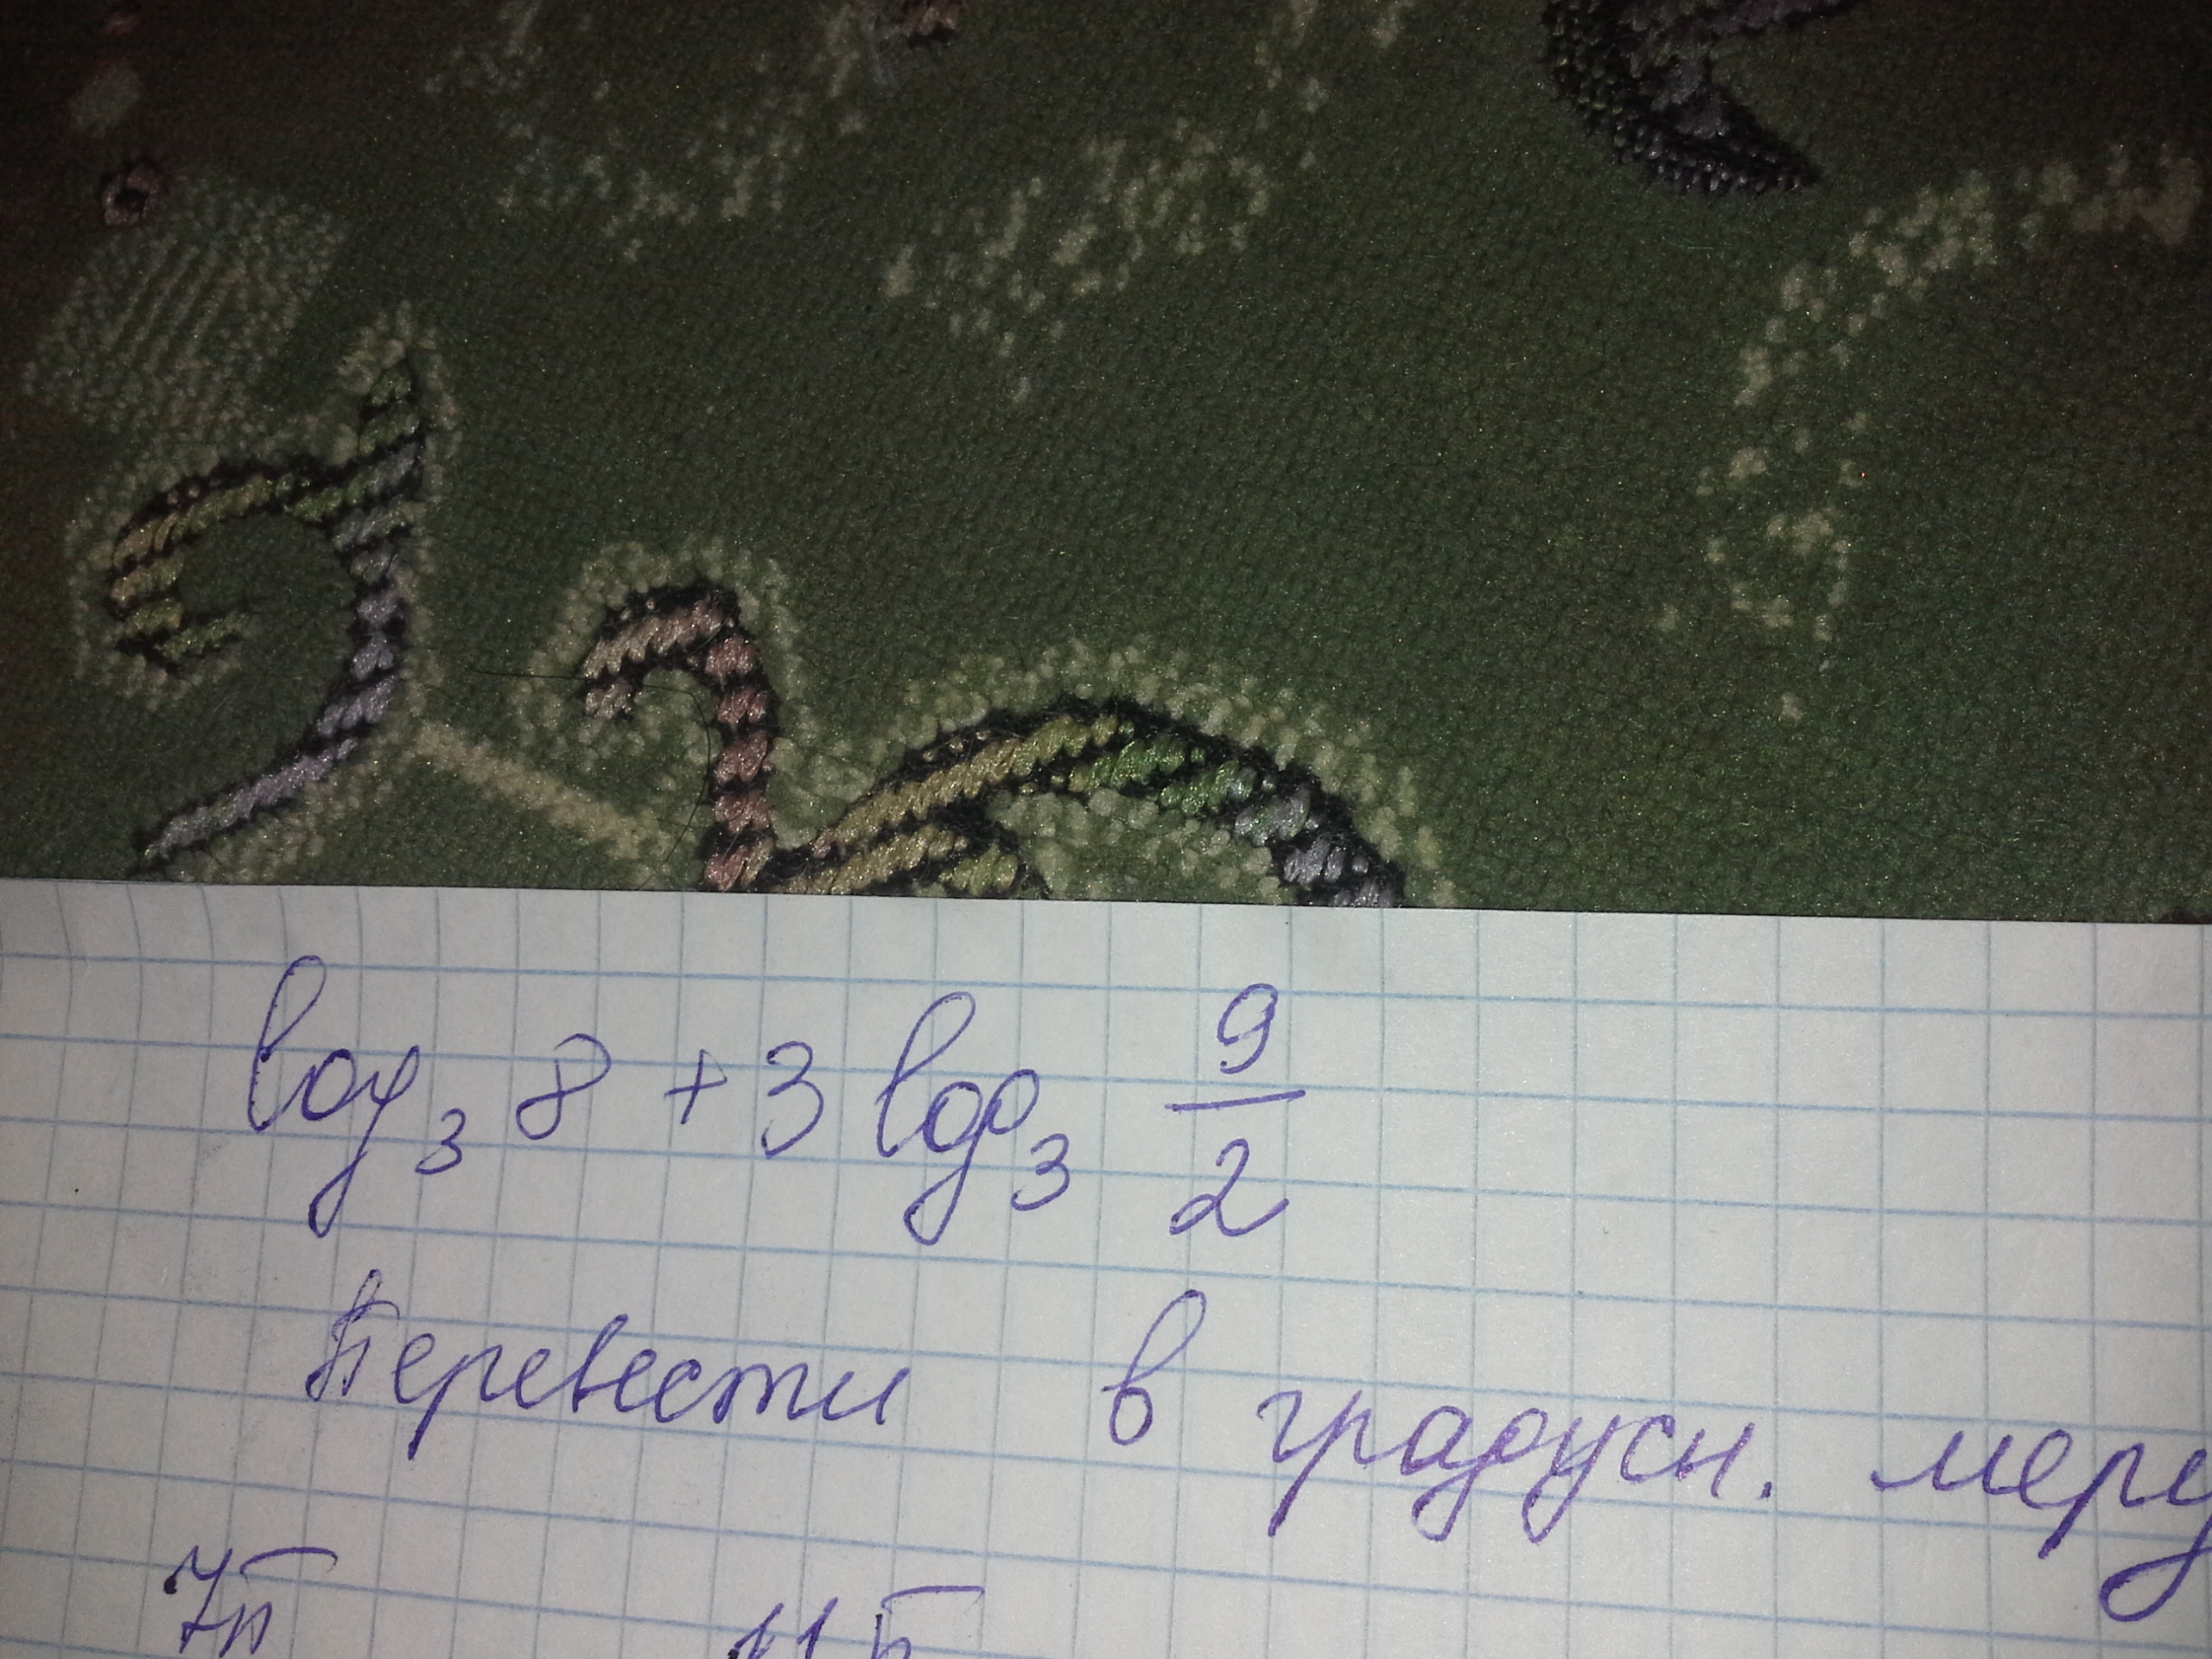 log₃ 8 + 3 log₃ 9/2
Перевести в градусн. меру
7π 11π